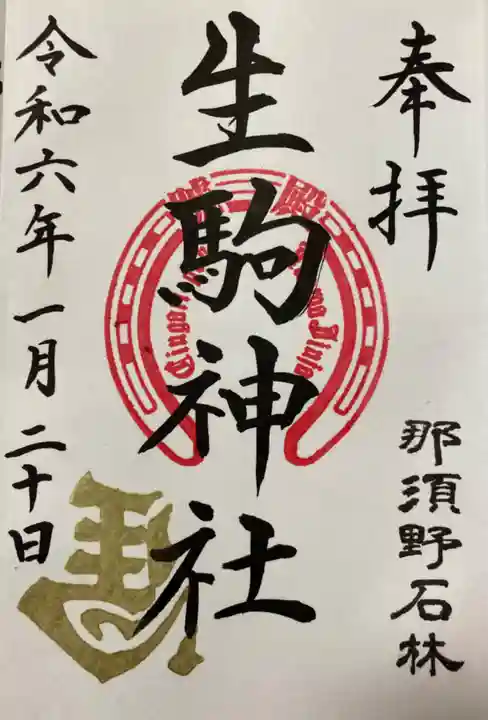 奉拝
那須野石林
生駒神社
殿
Jinja
令和六年一月二十日